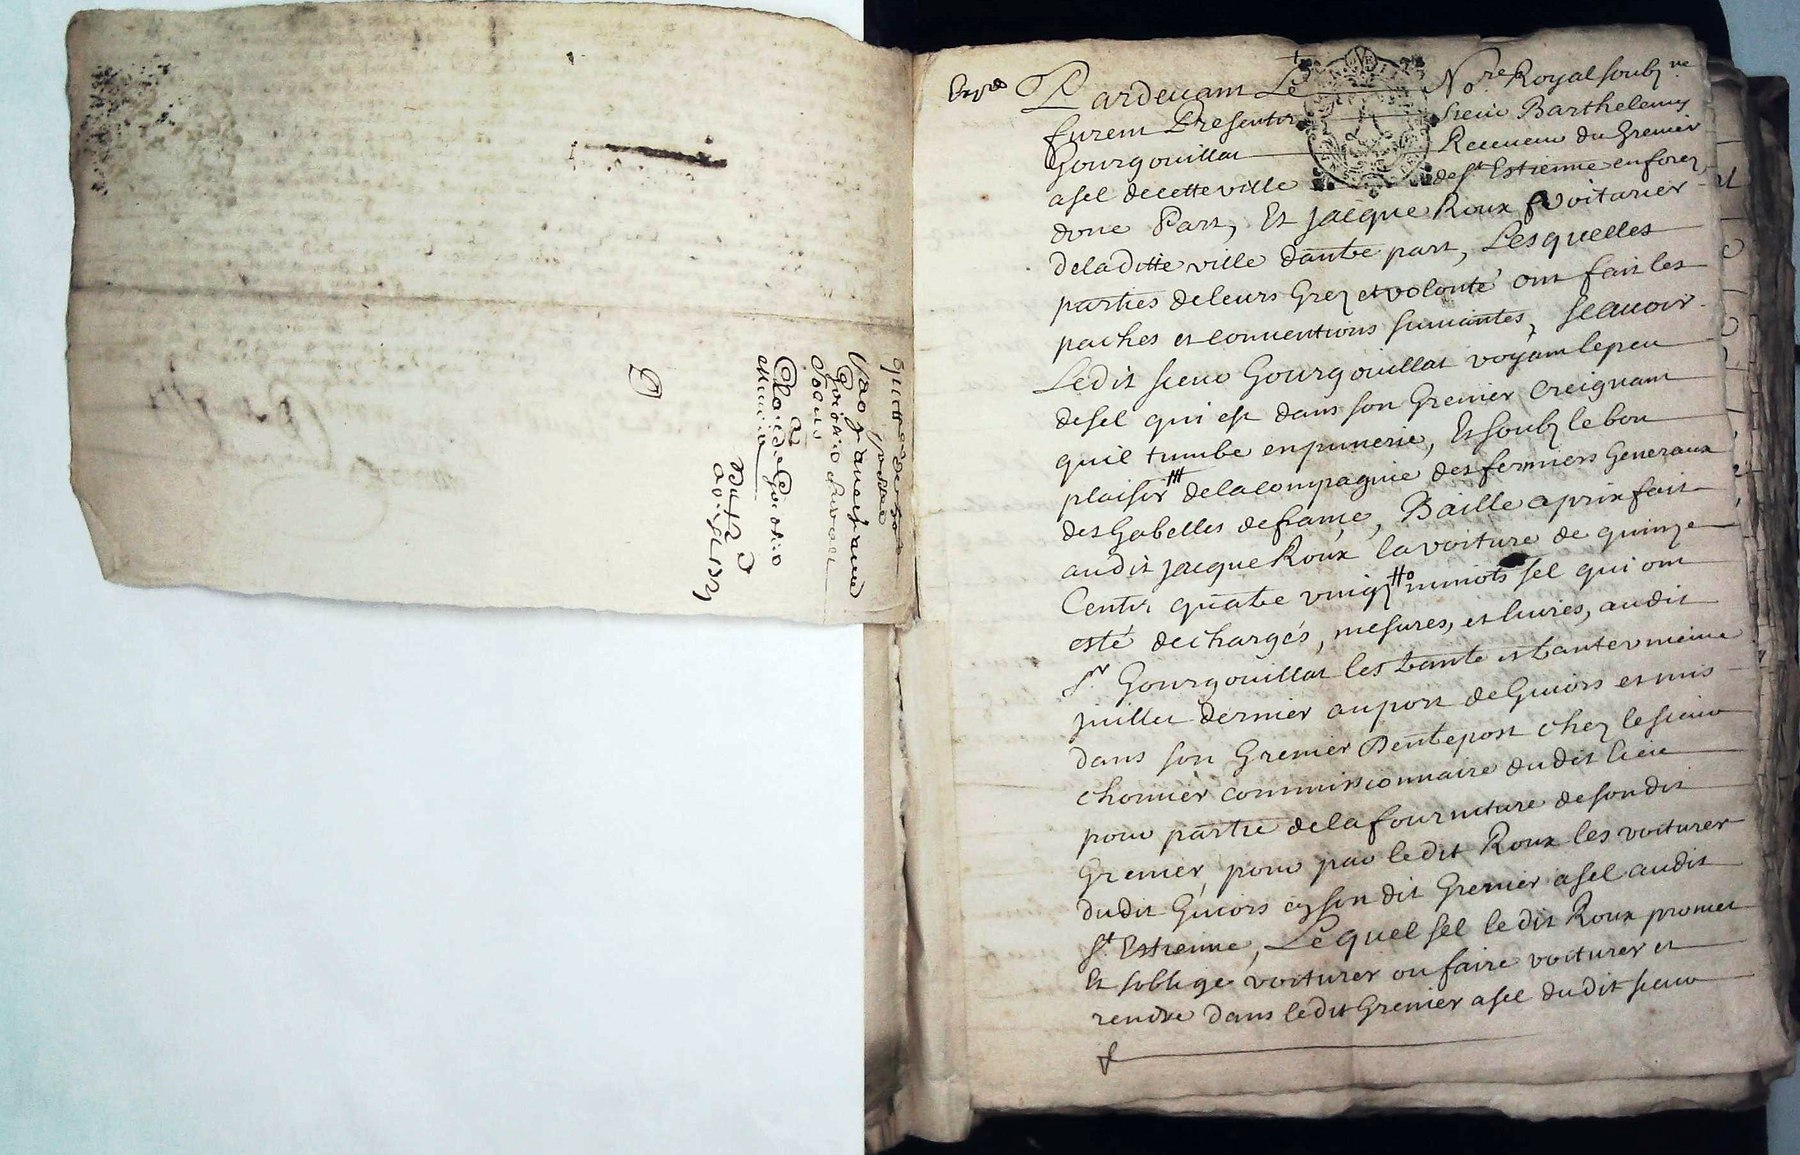 Pardevant Le No.re Royal soubz.ne
furent Presentz sieur Barthelemy
Gourgouillat Receveur du Grenier
a sel de cette ville de St Estienne en forez
dune Part, Et Jacque Roux voiturier
de la ditte ville dautre part, Lesquelles
parties de leurs Grez et volonté ont fait les
paches et conventions suivantes, scavoir
Ledit sieur Gourgouillat voyant le peu
de sel qui est dans son Grenier Creignant
quil tumbe en punerie, Et soubz le bon
plaisir de la compagnie des fermiers Generaux
des Gabelles de france, Baille a prix fait
audit Jacque Roux la voiture de quinze
Centz quatre vingz minots sel qui ont
esté dechargés, mesures, et livrés, audit
sr Gourgouillat les trante et trante un.me
juillet dernier au port de Givors et mis
dans son Grenier Dentrepost chez le sieur
chomier commissionnaire dudit lieu
pour partie de la fourniture de son dit
Grenier, pour par ledit Roux les voiturer
dudit Givors en son dit Grenier a sel audit
St Estienne, Lequel sel ledit Roux promet
Et soblige voiturer ou faire voiturer et
rendre dans ledit Grenier a sel dudit sieur